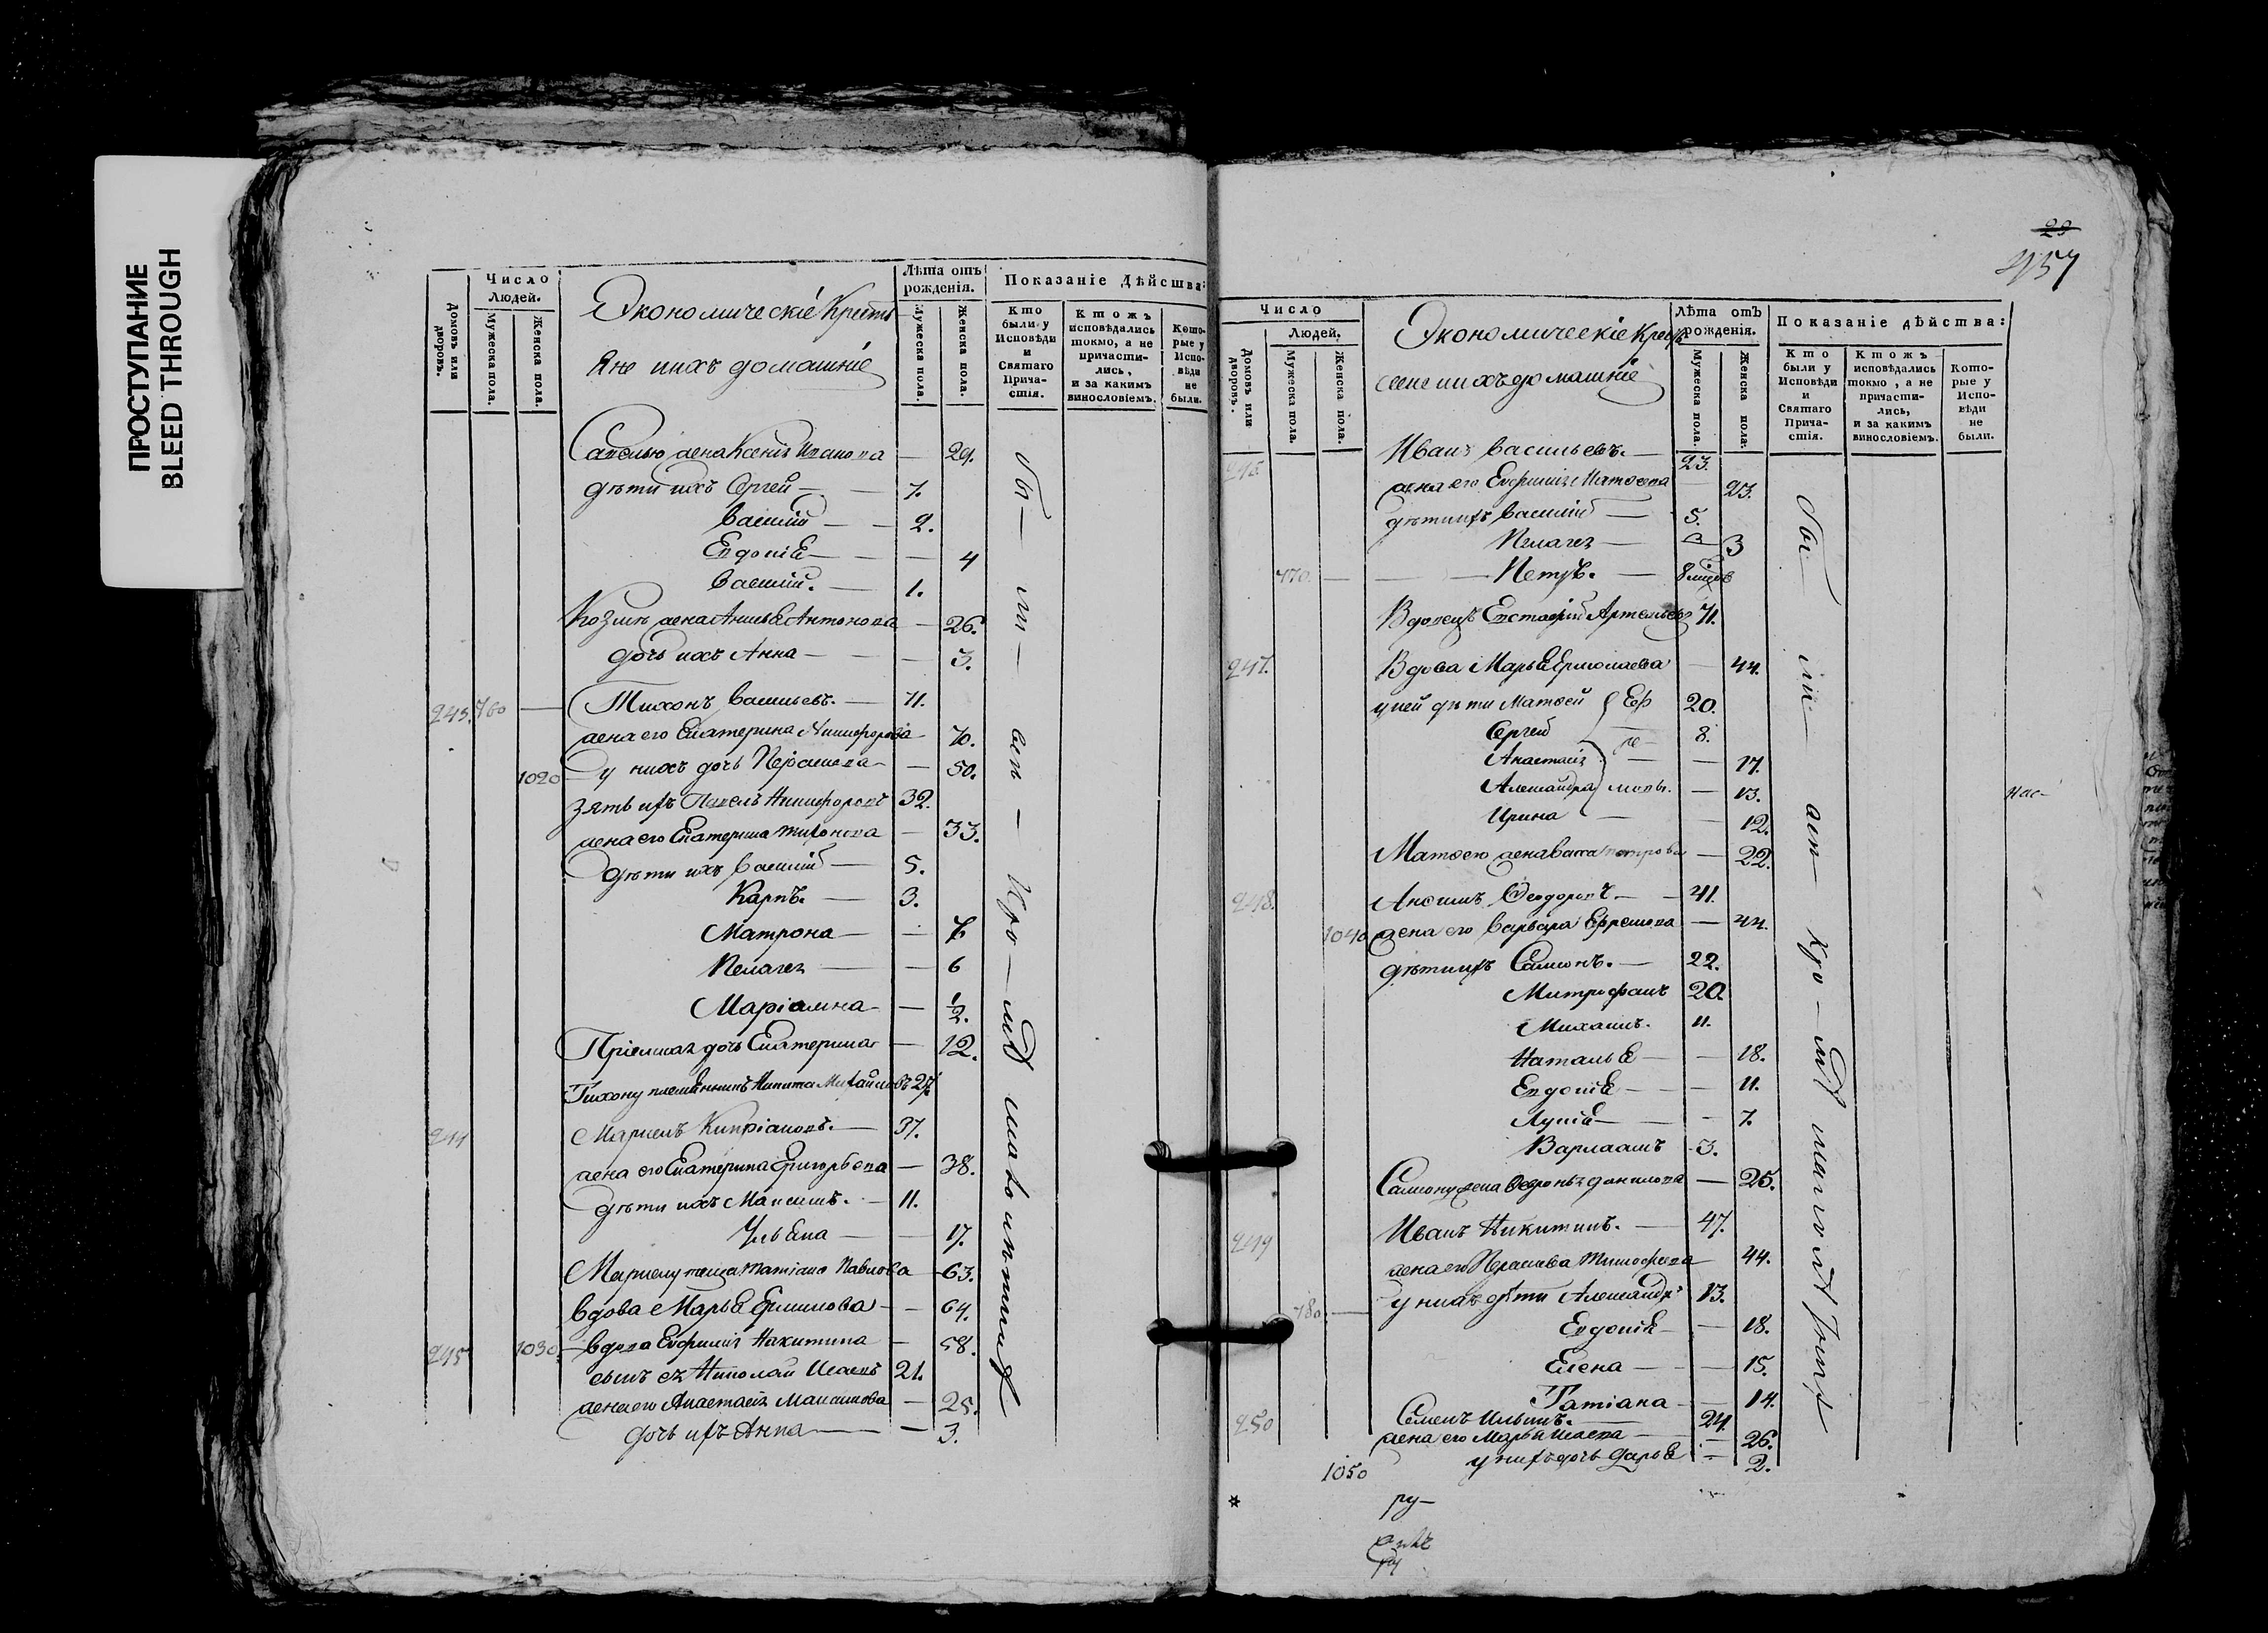 ПРОСТУПАНИЕ
BLEED THROUGH
Число Людей.
Домовъ или дворовъ.
Мужеска пола.
Женска пола.
Экономическіе Крестья
не и ихъ домашніе
Лѣта отъ рожденія.
Мужеска пола.
Женска пола.
Показаніе дѣйства:
Кто были у Исповѣди и Святаго Причастія.
Ктожъ исповѣдались токмо, а не причастились, и за какимъ винословіемъ.
Которые у Исповѣди не были.
жена Ксенія Иванова — 29.
дѣти ихъ Сергей — 7.
Василій — 2.
Евдокія — 4
Василій. — 1.
Козмы жена Антонова — 26.
дочь ихъ Анна — 3.
243. 760 — Тихонъ Васильевъ. — 71.
жена его Екатерина Никифорова 70.
1020 у нихъ дочь — 50.
зять ихъ Павелъ Никифоровъ 32.
жена его Екатерина Тихонова — 33.
дѣти ихъ Василій — 5.
Карпъ. — 3.
Матрона — 7
Пелагея — 6
Маріамна — 1/2.
Пріемная дочь Екатерина — 12.
Тихону племянникъ Никита Михайловъ 27.
244 Маркелъ Кипріановъ. — 37.
жена его Екатерина Григорьева — 38.
дѣти ихъ Максимъ. — 11.
Ульяна — 17.
Маркелу теща Татіана Павлова — 63.
вдова Марья — 64.
245 1030. вдова Евфимія Никитина — 58.
сынъ ея Николай Исаевъ 21.
жена его Анастасія Максимова — 25.
дочь ихъ Анна — 3.
бы — ли — вси — кро — мѣ малолѣтнихъ
29
457
Число Людей.
Домовъ или дворовъ.
Мужеска пола.
Женска пола.
Экономическіе Кресть
яне и ихъ домашніе
Лѣта отъ рожденія.
Мужеска пола.
Женска пола.
Показаніе дѣйства:
Кто были у Исповѣди и Святаго Причастія.
Ктожъ исповѣдались токмо, а не причастились, и за какимъ винословіемъ.
Которые у Исповѣди не были.
246 Иванъ Васильевъ. — 23.
жена его Евфимія Матвеева — 23.
дѣти ихъ Василій — 5.
Пелагея — 3
770. — Петръ. — 8 мѣсяцов
Вдовецъ Евстафій Артемьевъ 71.
247. Вдова Марья Ермолаева — 44.
у ней дѣти Матвей Еф 20.
Сергей ре — 8.
Анастасія — 17.
Александра мовы. — 13.
Ирина — 12.
Матвею жена Васса Петрова — 22.
248. Анисимъ Феодоровъ — 41.
1040 жена его Варвара Ефремова — 44.
дѣти ихъ Самсонъ. — 22.
Митрофанъ 20
Михаилъ. 11.
Наталья — 18.
Евдокія — 11.
Лукія — 7.
Варлаамъ 3.
Самсону жена Данилова — 25.
249 Иванъ Никитинъ. — 47.
жена его Тимофеева 44.
780. — у нихъ дѣти Александръ 13.
Евдокія — 18.
Елена — 15.
Татіана — 14.
250 Семенъ Ильинъ. — 24.
жена его Марья Исаева — 26.
1050 у нихъ дочь Дарья — 2.
бы — ли — вси — кро — мѣ малолѣтныхъ
*
ру —